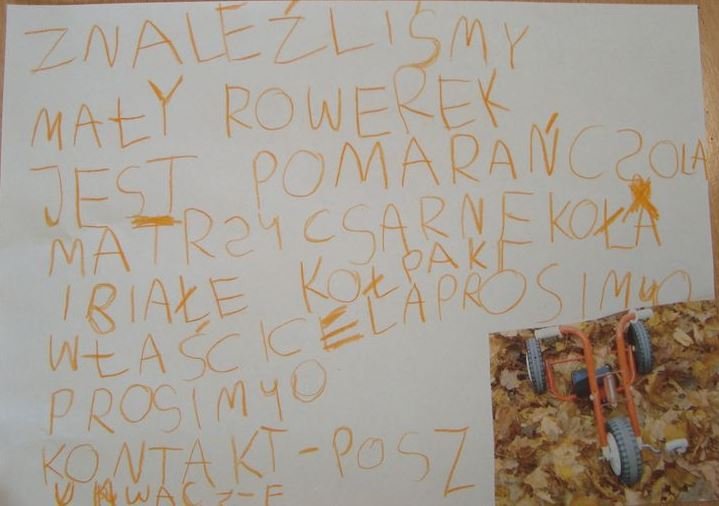 ZNALEŹLIŚMY
MAŁY ROWEREK
JEST POMARAŃCZOLA
MA TRZY CSARNE KOŁA
I BIAŁE KOŁPAKI
WŁAŚCICELA PROSIMYO
PROSIMYO
KONTAKT-POSZ